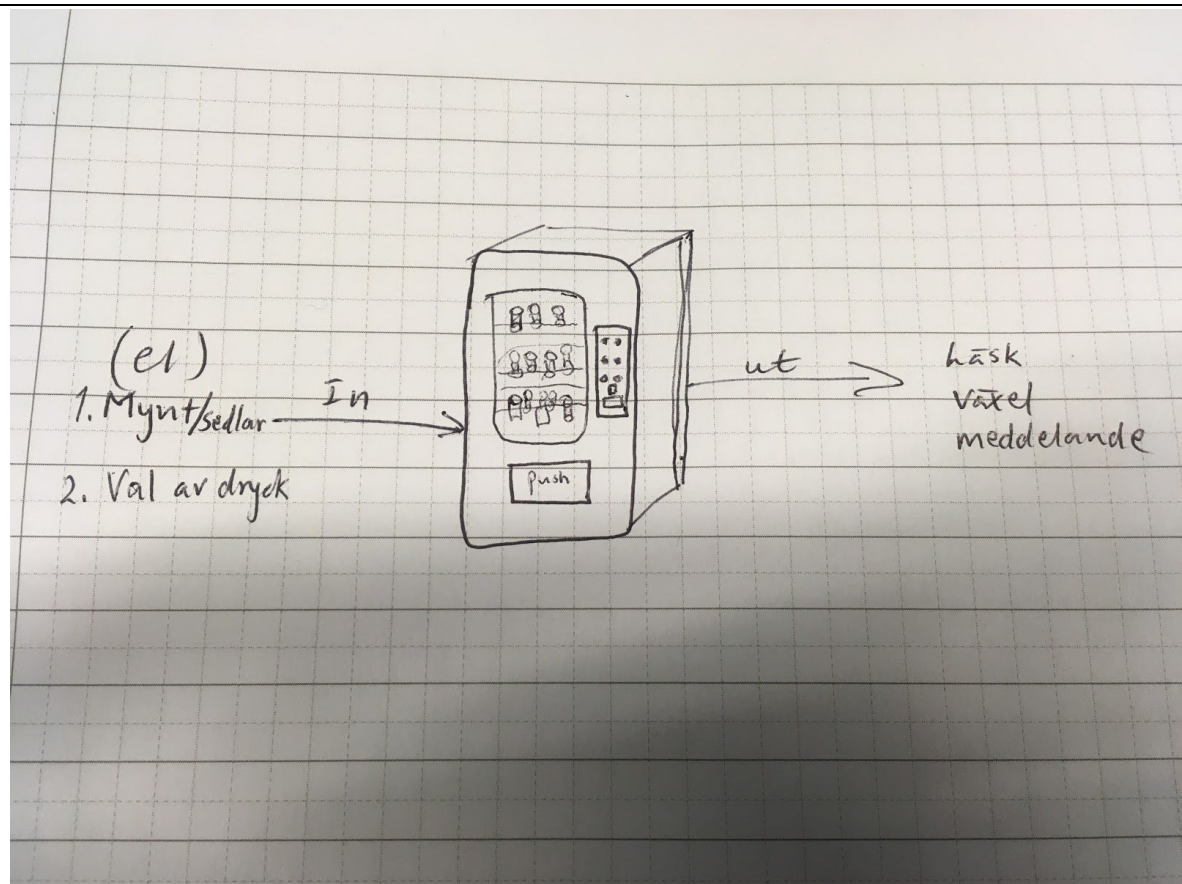 (el)
1. Mynt/sedlar
In
2. Val av dryck
push
ut
läsk
växel
meddelande